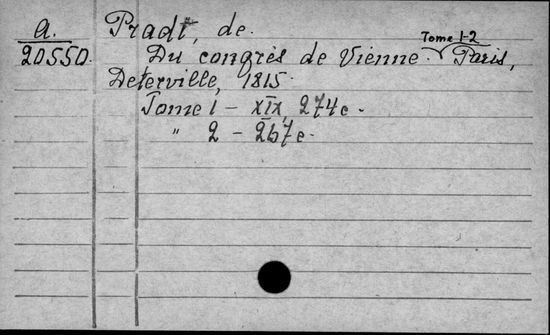 A. Pradt, de.
20550. Du congrès de Vienne. Tome 1-2 Paris,
Deterville, 1815.
Tome 1 – XIX, 274 c.
" 2 – 267 c.